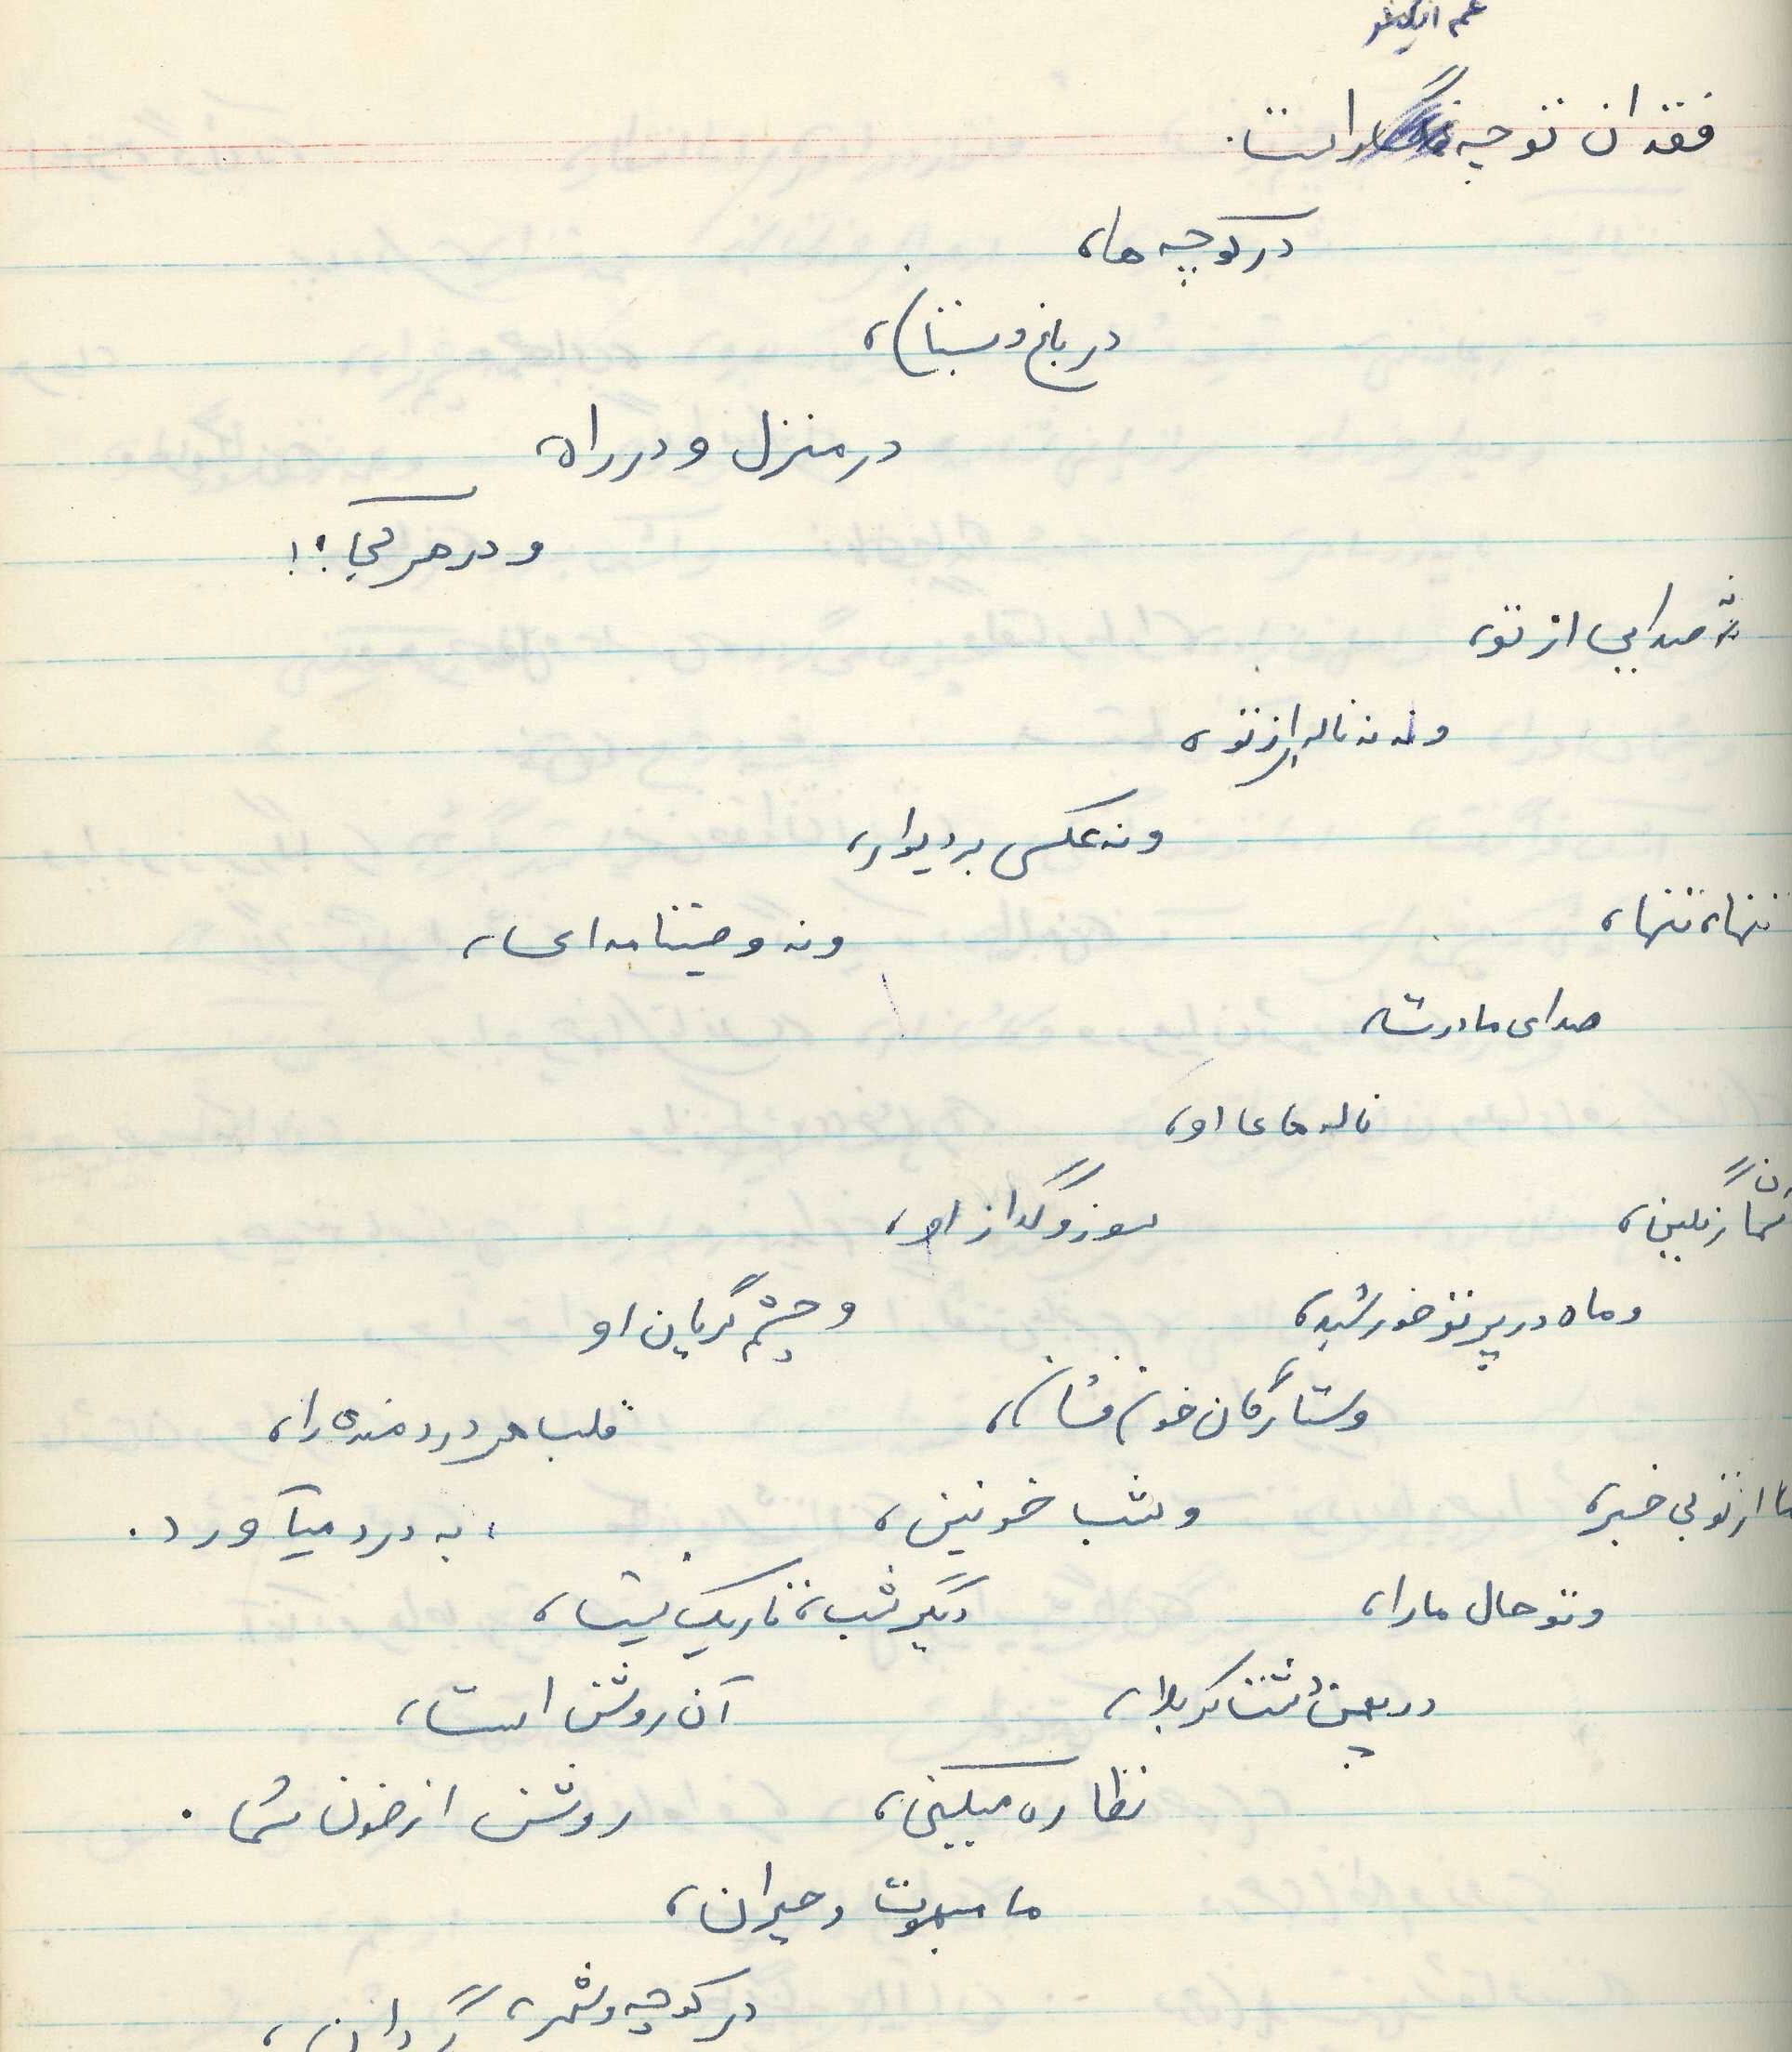 غم انگیز
فقدان تو چه است.
در کوچه ها،
در باغ و بستان،
در منزل و در راه
و در هر کجا؟!
نه صدایی از تو،
و نه ناله ای از تو،
و نه عکسی بر دیوار،
و نه وصیتنامه ای،
تنها، تنها،
صدای مادرت،
ناله های او،
سوز و گداز او،
و چشم گریان او
قلب هر دردمنده را،
به درد میآورد.
شما زنگین،
و ماه در پرتو خورشید،
و ستارگان خون فشان،
و شب خونین،
دیگر شب، تاریک نیست،
آن روشن است،
روشن از خون شما.
ما از تو بی خبر،
و تو حال ما را،
در پهن دشت کربلا،
نظاره میکنی،
ما مبهوت و حیران،
در کوچه و شهر،